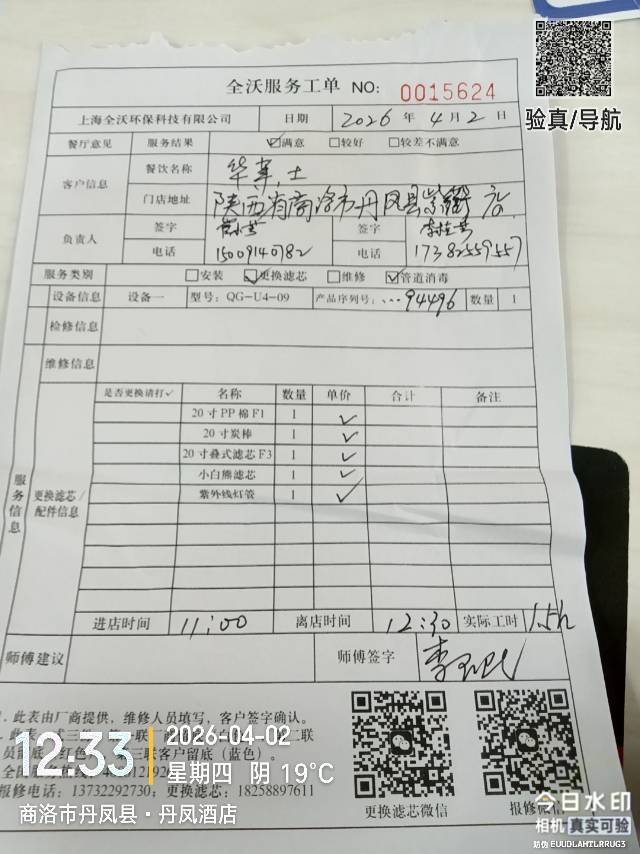 验真/导航
全沃服务工单 NO: 0015624
上海全沃环保科技有限公司 日期 2026 年 4 月 2 日
餐厅意见 服务结果 ☑满意 □较好 □较差不满意
客户信息 餐饮名称 华莱士
门店地址 陕西省商洛市丹凤县紫 店
负责人 签字 签字
电话 15009140782 电话 17382559557
服务类别 □安装 ☑更换滤芯 □维修 ☑管道消毒
设备信息 设备一 型号: QG-U4-09 产品序列号: ...94496 数量 1
检修信息
维修信息
服务信息
更换滤芯/配件信息
是否更换请打✓ 名称 数量 单价 合计 备注
20寸PP棉F1 1 ✓
20寸炭棒 1 ✓
20寸叠式滤芯F3 1 ✓
小白熊滤芯 1 ✓
紫外线灯管 1 ✓
进店时间 11:00 离店时间 12:30 实际工时 1.5h
师傅建议 师傅签字 李
此表由厂商提供，维修人员填写，客户签字确认。
联客户留底（蓝色）。
报修电话：13732292730；更换滤芯：18258897611
更换滤芯微信 报修微信
12:33
2026-04-02
星期四 阴 19℃
商洛市丹凤县·丹凤酒店
今日水印
相机 真实可验
防伪 EUUDLAHTLRRUG3